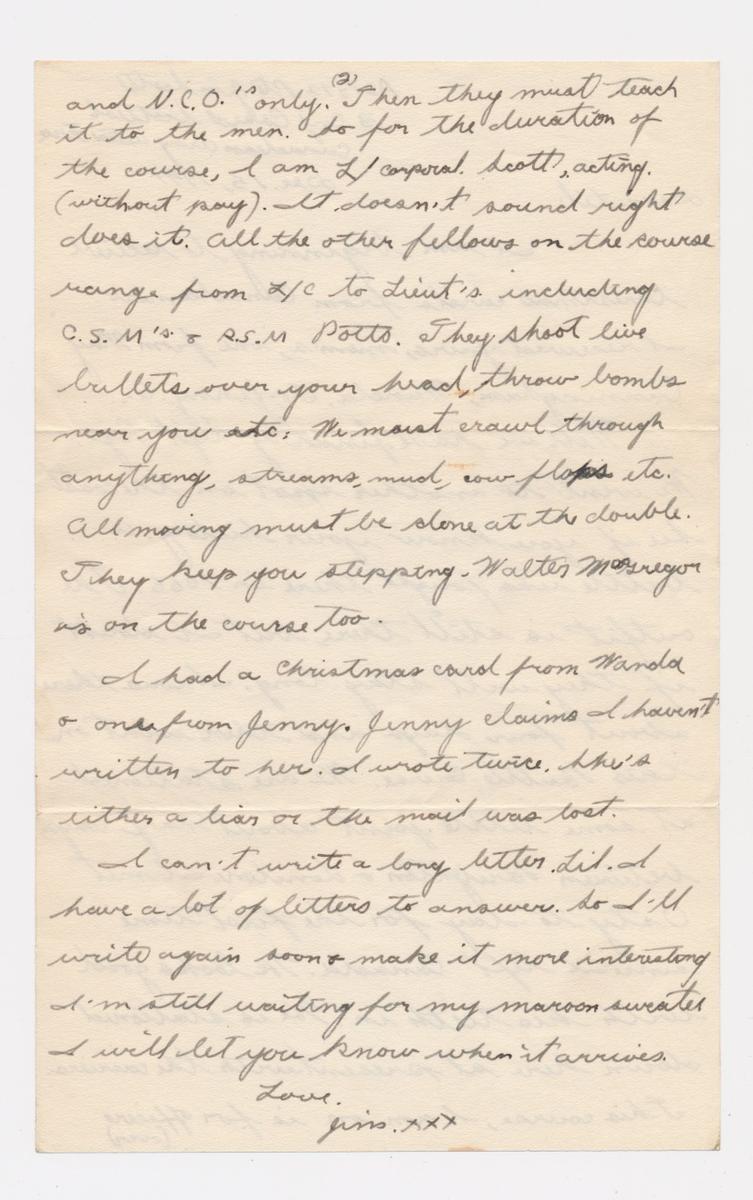 (2)
and N.C.O.'s only. Then they must teach
it to the men. So for the duration of
the course, I am L/ corporal. Scott, acting.
(without pay). It doesn't sound right
does it. All the other fellows on the course
range from L/C to Lieut's including
C.S.M's. & R.S.M Potts. They shoot live
bullets over your head, throw bombs
near you etc; We must crawl through
anything, streams, mud, cow flops etc.
All moving must be done at the double.
They keep you stepping. Walter McGregor
is on the course too.
I had a Christmas card from Wanda
& one from Jenny. Jenny claims I haven't
written to her. I wrote twice. She's
either a liar or the mail was lost.
I can't write a long letter, Lil. I
have a lot of letters to answer. So I'll
write again soon & make it more interesting
I'm still waiting for my maroon sweater
I will let you know when it arrives.
Love.
Jim. xxx